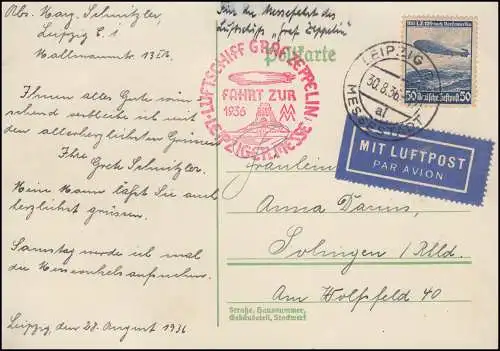 Abs. Marg. Schnitzler,
Leipzig C 1
Ihnen alles Gute wün-
schend verbleibe ich mit
den allerherzlichsten Grüssen
Ihre Grete Schnitzler.
Mein Mann läßt Sie auch
herzlichst grüssen.
Samstag werde ich mal
aufsuchen.
Leipzig, den 28. August 1936
Für die Messefahrt des
Luftschiffs "Graf Zeppelin"
Postkarte
LUFTSCHIFF GRAF ZEPPELIN
FAHRT ZUR
1936
LEIPZIGER MESSE
LEIPZIG
30.8.36
al
MESSESTADT
50 Deutsche Luftpost 50
MIT LUFTPOST
PAR AVION
Fräulein
Anna
Solingen / Rhld.
Am Wolfsfeld 40
Straße, Hausnummer,
Gebäudeteil, Stockwerk